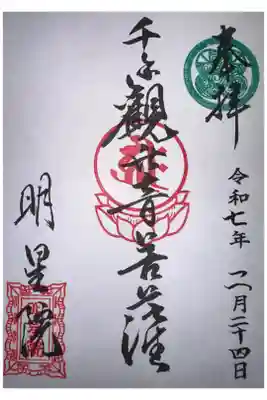 奉拝
令和七年 月二十四日
千手觀世音菩薩
明星院